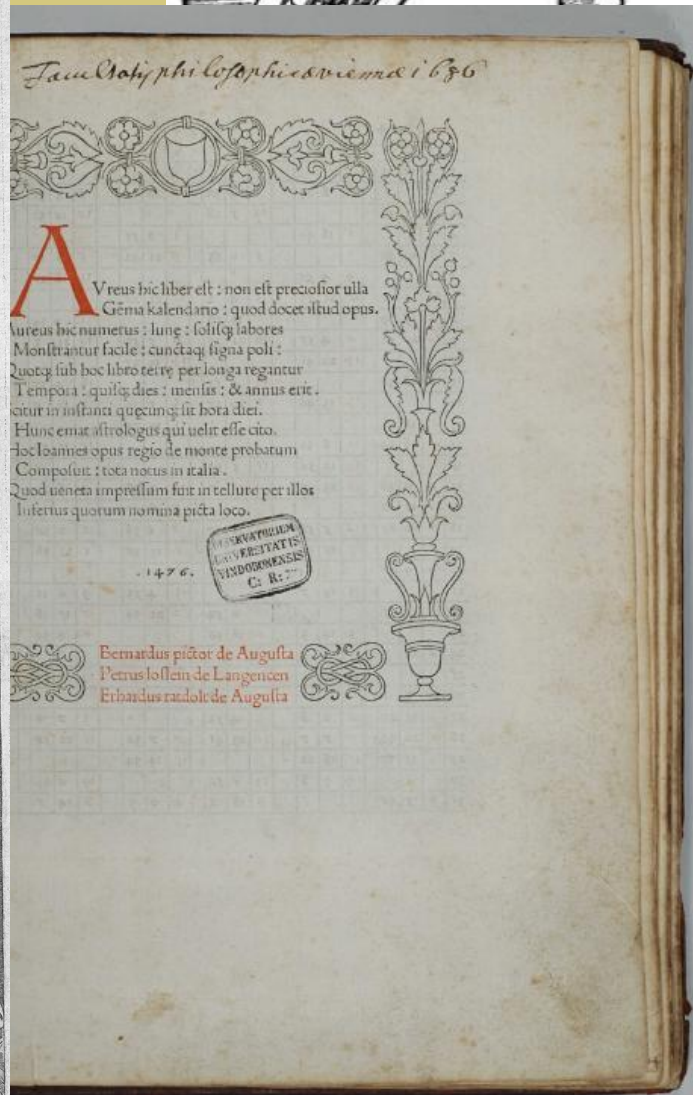 Facultatis philosophicæ viennæ 1686
AVreus hic liber est : non est preciosior ulla
Gẽma kalendario : quod docet istud opus.
Aureus hic numerus : lunę : solisq; labores
Monstrantur facile : cunctaq; signa poli :
Quotq; sub hoc libro terrę per longa regantur
Tempora : quisq; dies : mensis : & annus erit.
citur in instanti quęcunq; sit hora diei.
Hunc emat astrologus qui uelit esse cito.
Hoc Ioannes opus regio de monte probatum
Composuit : tota notus in italia.
Quod ueneta impressum fuit in tellure per illos
Inferius quorum nomina picta loco.
OBSERVATORIUM
UNIVERSITATIS
VINDOBONENSIS
C: R:
.1476.
Bernardus pictor de Augusta
Petrus loslein de Langencen
Erhardus ratdolt de Augusta